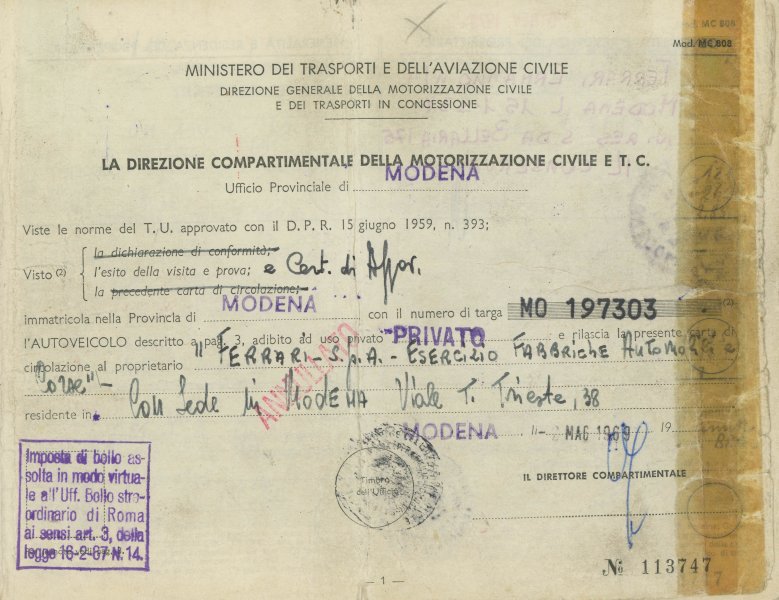 Mod. MC 808
MINISTERO DEI TRASPORTI E DELL'AVIAZIONE CIVILE
DIREZIONE GENERALE DELLA MOTORIZZAZIONE CIVILE
E DEI TRASPORTI IN CONCESSIONE
LA DIREZIONE COMPARTIMENTALE DELLA MOTORIZZAZIONE CIVILE E T. C.
Ufficio Provinciale di MODENA
Viste le norme del T. U. approvato con il D. P. R. 15 giugno 1959, n. 393;
la dichiarazione di conformità;
Visto (2) l'esito della visita e prova; e Cert. di Appr.
la precedente carta di circolazione;
immatricola nella Provincia di MODENA con il numero di targa MO 197303 (2)
l'AUTOVEICOLO descritto a pag. 3, adibito ad uso privato PRIVATO e rilascia la presente carta di
circolazione al proprietario "FERRARI - S.p.A. - ESERCIZIO FABBRICHE AUTOMOBILI e
Corse" -
residente in Con Sede in MODENA Viale T. Trieste, 38
ANNULLATO
MODENA MAG 1969 19
Imposta di bollo as-
solta in modo virtua-
le all'Uff. Bollo stra-
ordinario di Roma
ai sensi art. 3, della
legge 16-2-67 N. 14.
Timbro
dell'Ufficio
IL DIRETTORE COMPARTIMENTALE
№ 113747
— 1 —